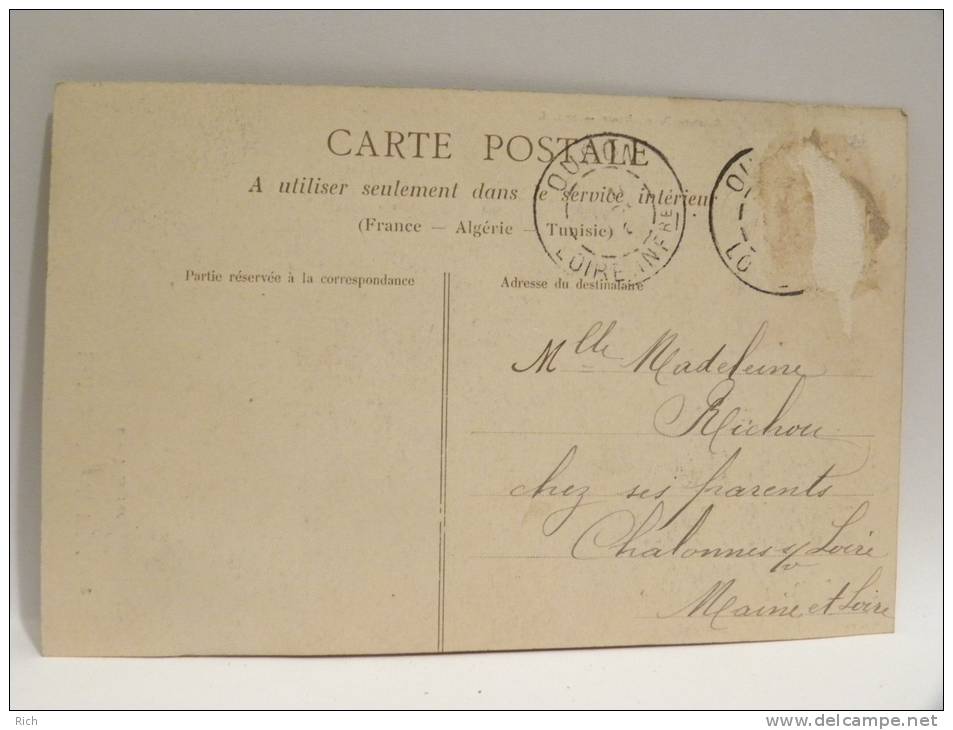 CARTE POSTALE
A utiliser seulement dans le service intérieur
(France — Algérie — Tunisie)
OUDON
LOIRE-INFRE
OU
LO
Partie réservée à la correspondance
Adresse du destinataire
Mlle Madeleine
Richou
chez ses parents
Chalonnes s/ Loire
Maine et Loire
Rich
www.delcampe.net